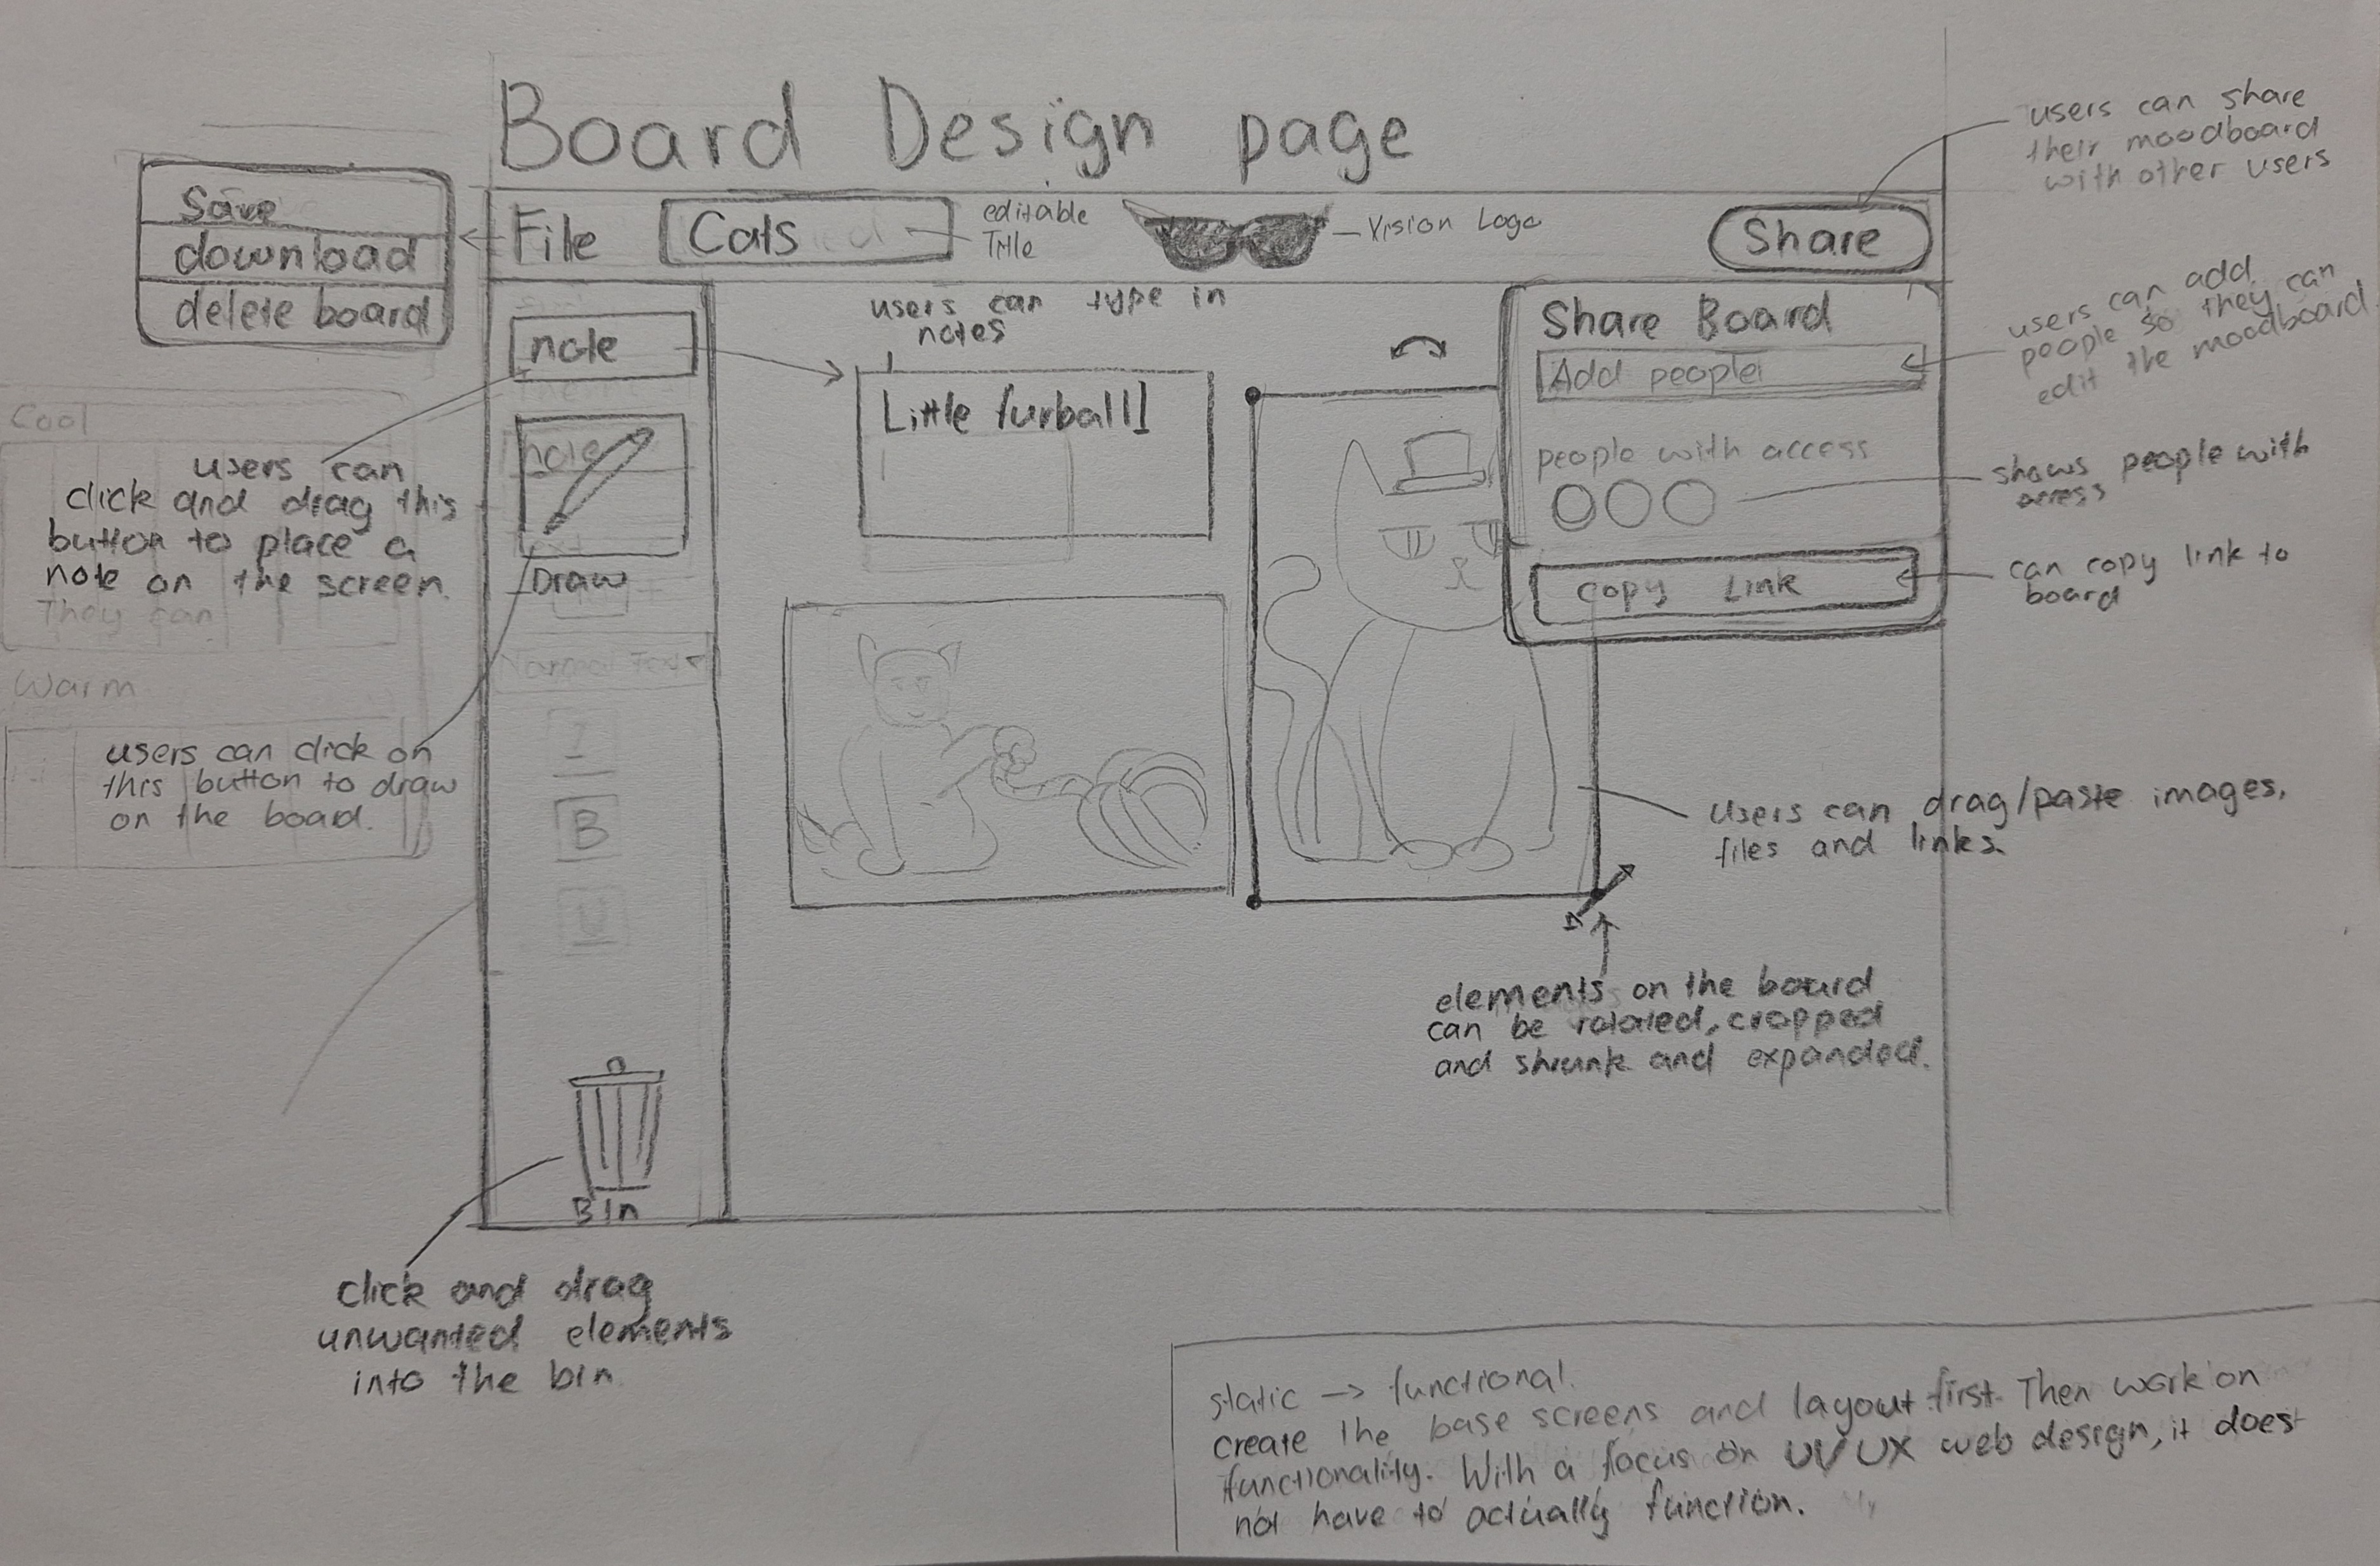 Board Design page
Save
download
delete board
File
Cats
editable
Title
Vision Logo
Share
users can share
their moodboard
with other users
note
users can type in
notes
Little furball
Share Board
Add people
people with access
copy Link
users can add
people so they can
edit the moodboard
shows people with
access
can copy link to
board
Cool
users can
click and drag this
button to place a
note on the screen.
They can
note
Draw
Normal Text
Warm
users can click on
this button to draw
on the board.
I
B
U
users can drag/paste images,
files and links.
elements on the board
can be rotated, cropped
and shrunk and expanded.
Bin
click and drag
unwanted elements
into the bin
static → functional.
create the base screens and layout first. Then work on
functionality. With a focus on UI/UX web design, it does
not have to actually function. My